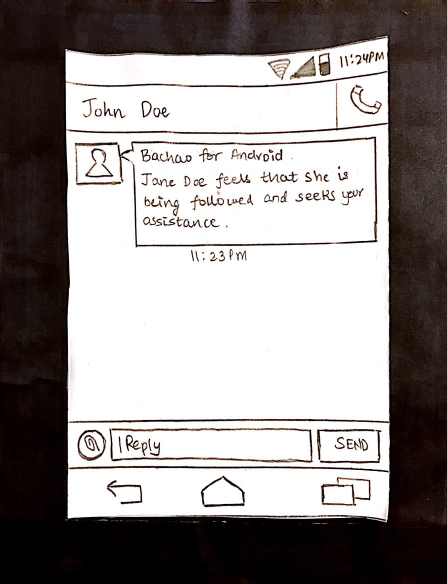 11:24PM
John Doe
Bachao for Android.
Jane Doe feels that she is
being followed and seeks your
assistance.
11:23PM
Reply
SEND